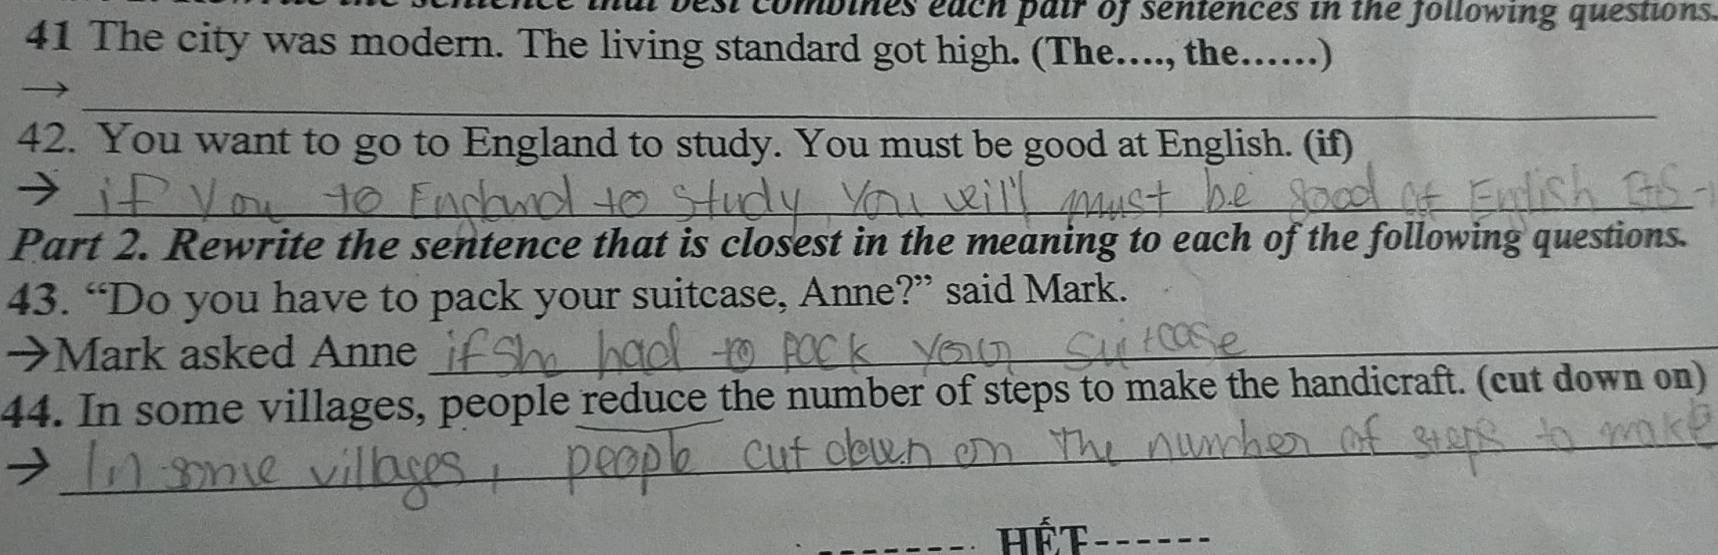 the sentence that best combines each pair of sentences in the following questions.
41 The city was modern. The living standard got high. (The...., the......)
→
42. You want to go to England to study. You must be good at English. (if)
→ if You to England to study, You will must be good at English
Part 2. Rewrite the sentence that is closest in the meaning to each of the following questions.
43. “Do you have to pack your suitcase, Anne?” said Mark.
→Mark asked Anne if she had to pack your suitcase
44. In some villages, people reduce the number of steps to make the handicraft. (cut down on)
→ In some villages, people cut down on the number of steps to make
-------. HẾT------